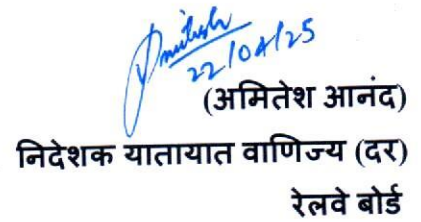 Amitesh
22/04/25
(अमितेश आनंद)
निदेशक यातायात वाणिज्य (दर)
रेलवे बोर्ड